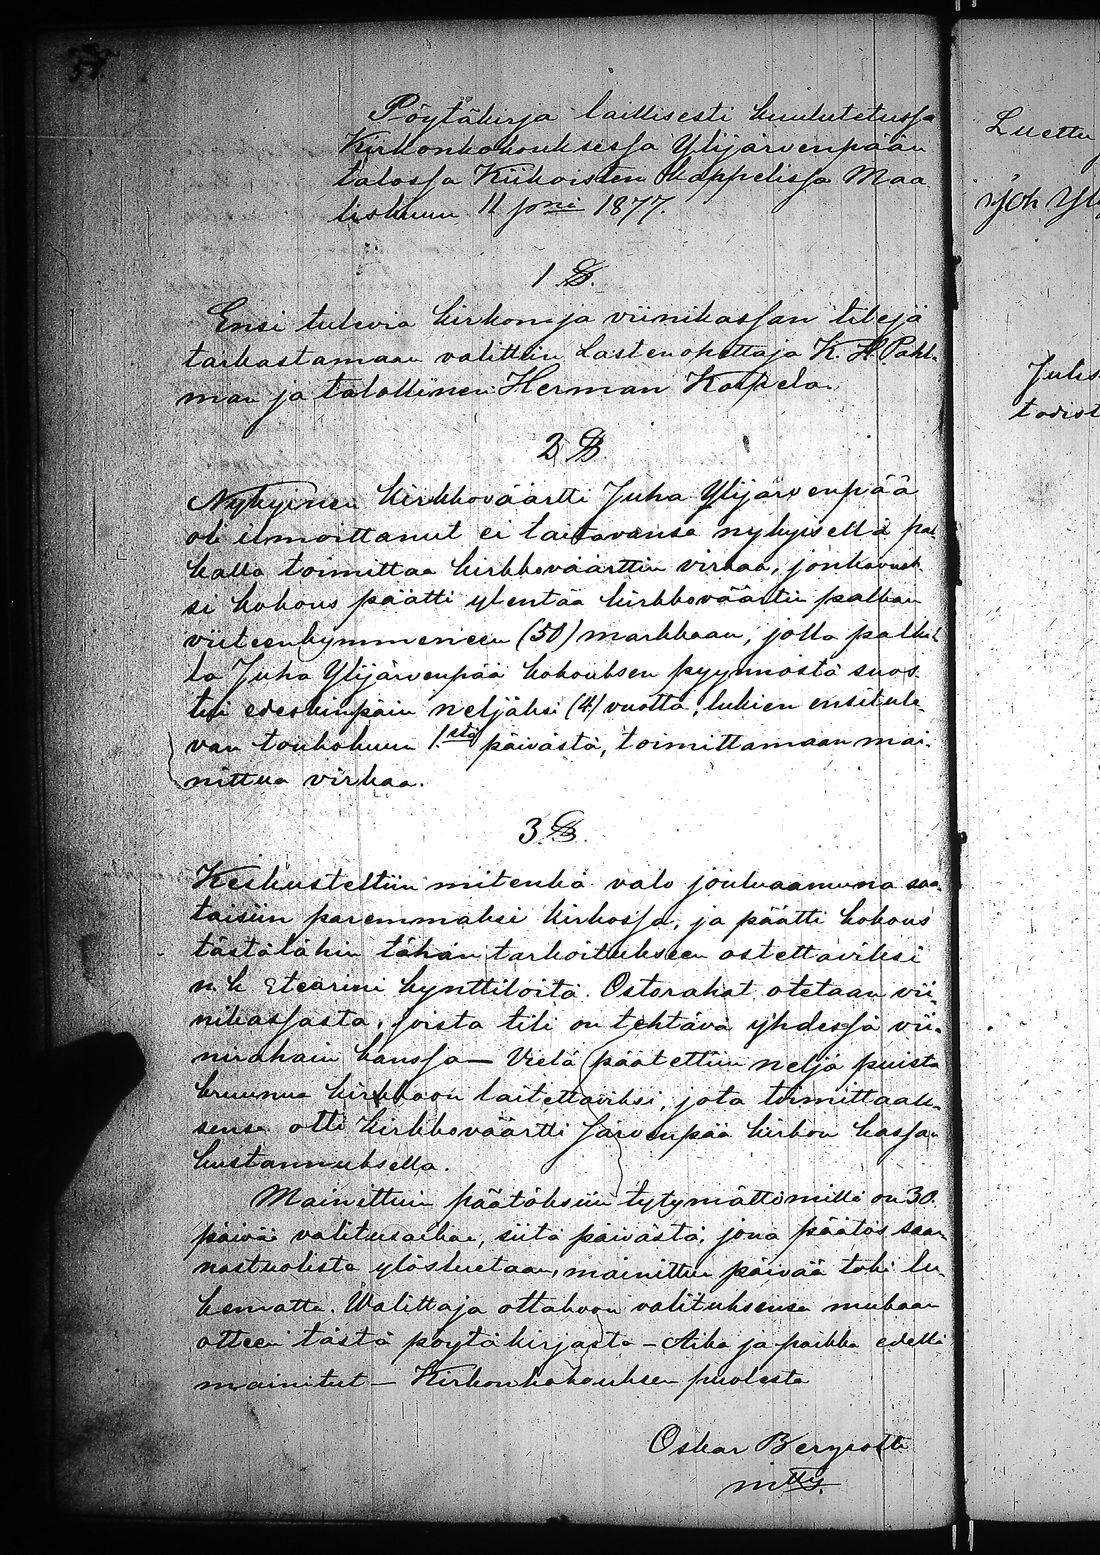 54.
Pöytäkirja laillisesti kuulutetussa
Kirkonkokouksessa Ylijärvenpään
talossa Kiikoisten kappelissa Maa
liskuun 11 pnä 1877.
1 §.
Ensi tulevia kirkon ja viinikassan tilejä
tarkastamaan valittiin lastenopettaja K. H. Pahl-
man ja talollinen Herman Koskela.
2 §.
Nykyinen kirkkoväärtti Juha Ylijärvenpää
oli ilmoittanut ei taitavansa nykyisellä pal
kalla toimittaa kirkkoväärttin virkaa, jonkavuok
si kokous päätti ylentää kirkkoväärtin palkan
viiteenkymmeneen (50) markkaan, jolla palkal
la Juha Ylijärvenpää kokouksen pyynnöstä suos-
tui edeskinpäin neljäksi (4) vuotta, lukien ensitule-
van toukokuun 1.stä päivästä, toimittamaan mai-
nittua virkaa.
3 §.
Keskusteltiin mitenkä valo jouluaamuna saa-
taisiin paremmaksi kirkossa, ja päätti kokous
tästälähin tähän tarkoitukseen ostettaviksi
n. k. Stearini kynttilöitä. Ostorahat otetaan vii-
nikassasta, joista tili on tehtävä yhdessä vii-
nirahain kanssa — Vielä päätettiin neljä puista
kruunua kirkkoon laitettaviksi, jota toimittaak-
sensa otti kirkkoväärtti Järvenpää kirkon kassan
kustannuksella.
Mainittuin päätöksiin tytymättömillä on 30.
päivää valitusaikaa, siitä päivästä, jona päätös saar-
nastuolista ylösluetaan, mainittua päivää toki lu-
kematta. Walittaja ottakoon valituksensa mukaan
otteen tästä pöytäkirjasta — Aika ja paikka edellä
mainitut — Kirkonkokouksen puolesta
Oskar Bergroth
Luettu
Joh Yli
Julis
todist